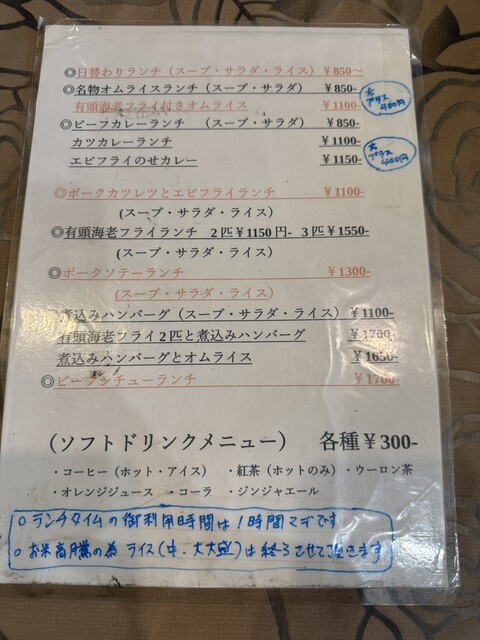 ◎日替わりランチ（スープ・サラダ・ライス） ￥850～
◎名物オムライスランチ（スープ・サラダ） ￥850-
大プラス400円
有頭海老フライ付きオムライス ￥1100-
◎ビーフカレーランチ （スープ・サラダ） ￥850-
カツカレーランチ ￥1100-
大プラス400円
エビフライのせカレー ￥1150-
◎ポークカツレツとエビフライランチ ￥1100-
(スープ・サラダ・ライス）
◎有頭海老フライランチ 2匹￥1150円- 3匹￥1550-
(スープ・サラダ・ライス）
◎ポークソテーランチ ￥1300-
(スープ・サラダ・ライス）
◎煮込みハンバーグ（スープ・サラダ・ライス） ￥1100-
有頭海老フライ2匹と煮込みハンバーグ ￥1700-
煮込みハンバーグとオムライス ￥1650-
◎ビーフシチューランチ ￥1700-
（ソフトドリンクメニュー） 各種￥300-
・コーヒー（ホット・アイス） ・紅茶（ホットのみ）・ウーロン茶
・オレンジジュース ・コーラ ・ジンジャエール
○ランチタイムの御利用時間は1時間マデです
○お米高騰の為 ライス(中・大大盛)は終了させて頂きます